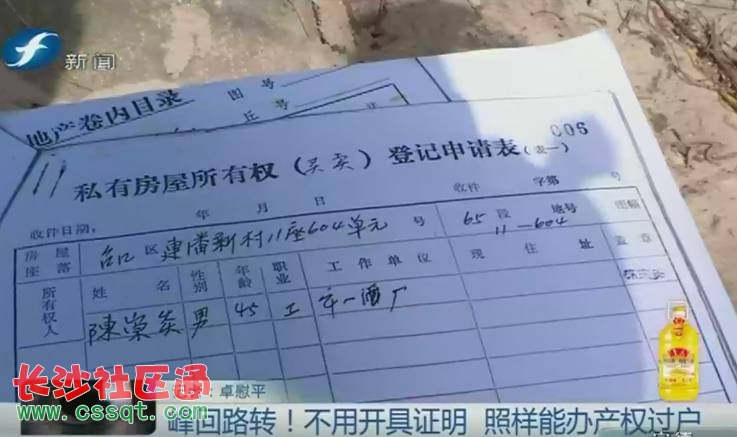 新闻
地产卷内目录
图 号
丘 号
006
私有房屋所有权（买卖）登记申请表（表一）
收件日期： 年 月 日 收件 字第 号
房屋座落 台江区連潘新村11座604单元 号 65段 地号 图幅
11—604
所有权人 姓名 性别 年龄 职业 工作单位 现住址 盖章
陳崇炎 男 45 工 第一酒厂
长沙社区通
www.cssqt.com
卓慰平
峰回路转！不用开具证明 照样能办产权过户